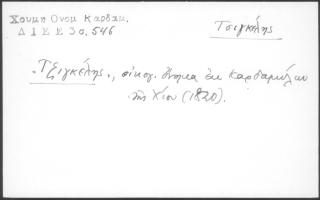 Χουμη Ονομ Καρδαμ.
ΔΙΕΕ 30.546
Τσιγκέλης
"Τζιγκέλης", οἰκογ. ὄνομα ἐκ Καρδαμύλων
τῆς Χίου (1820).